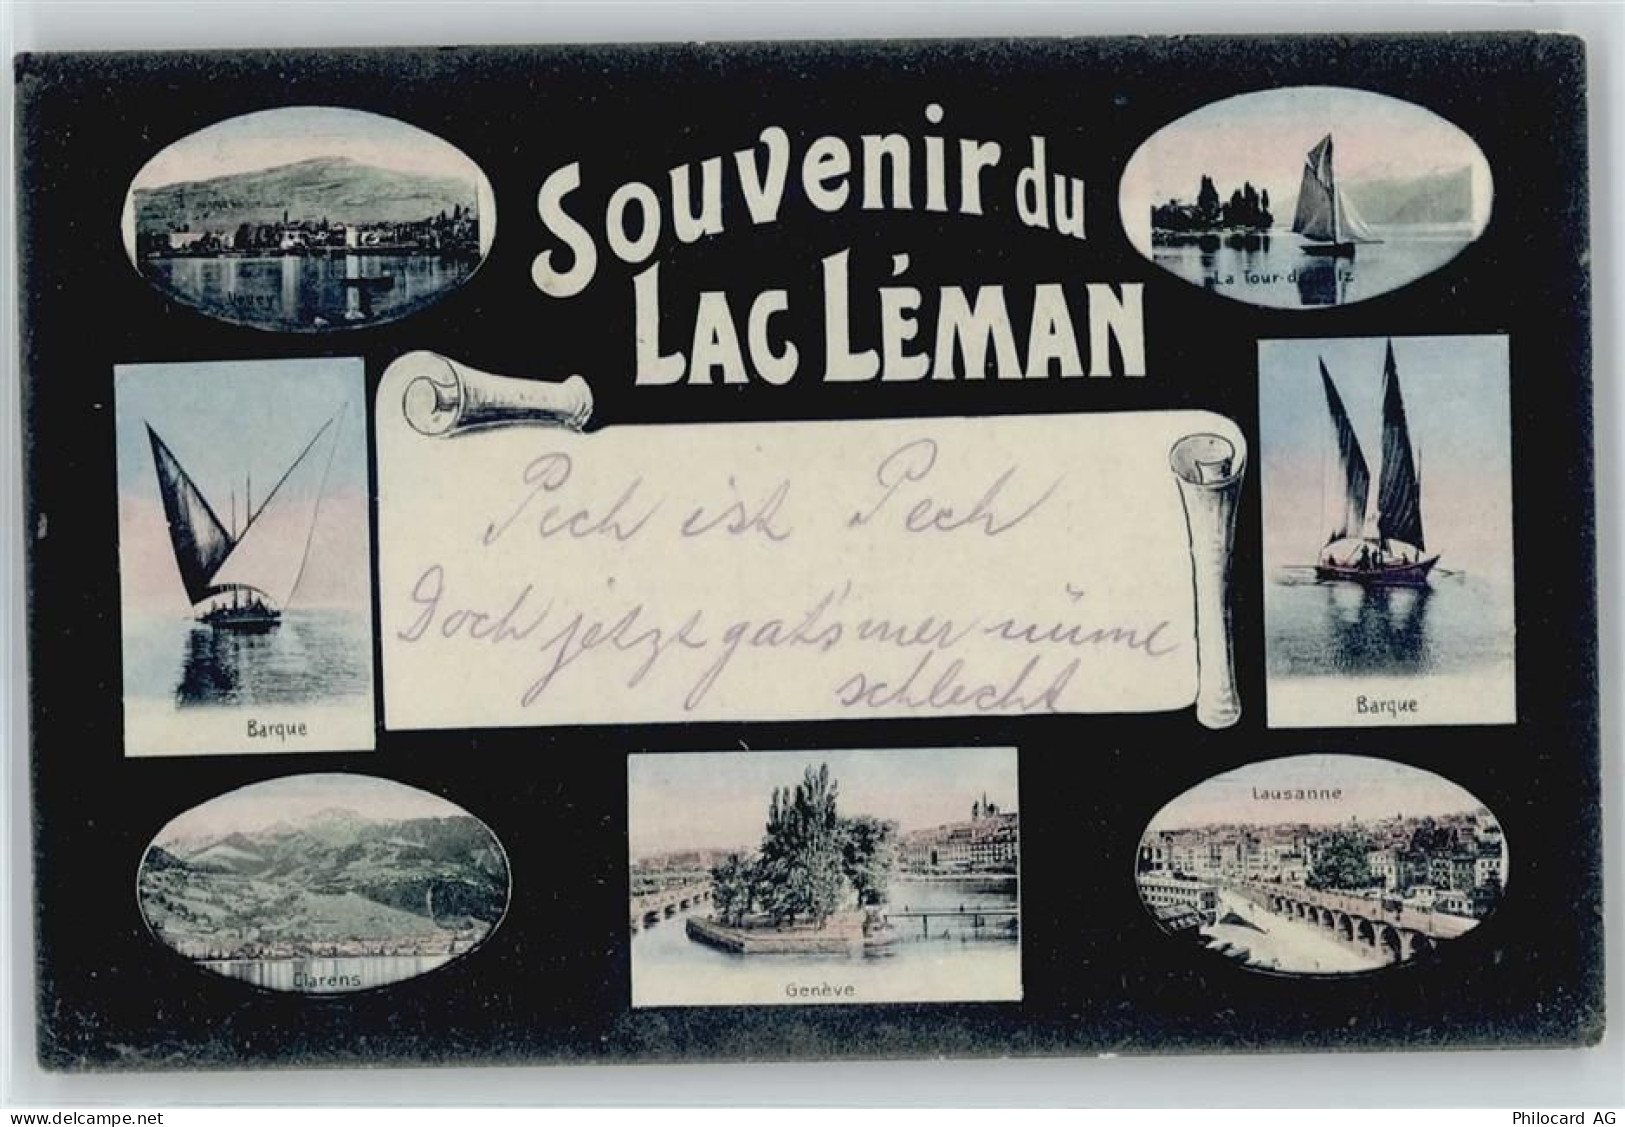 Souvenir du
LAC LÉMAN
Vevey
La Tour-de
Pech ist Pech
Doch jetzt gat's mer nüme
schlecht
Barque
Barque
Lausanne
Clarens
Genève
www.delcampe.net
Philocard AG